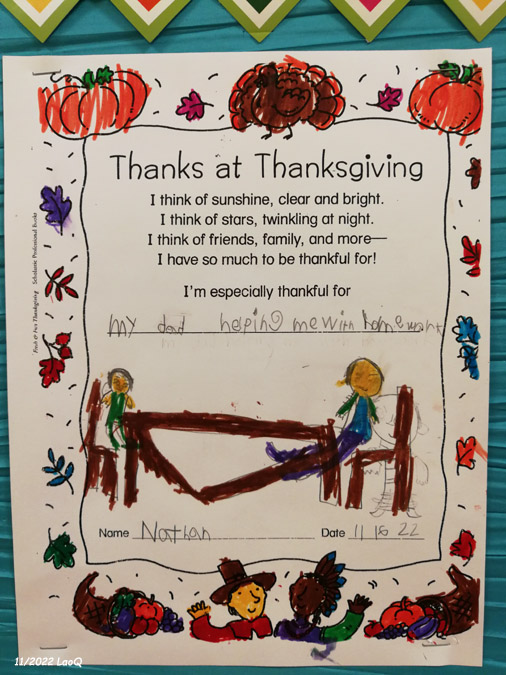 Thanks at Thanksgiving
I think of sunshine, clear and bright.
I think of stars, twinkling at night.
I think of friends, family, and more—
I have so much to be thankful for!
I'm especially thankful for
my dad helping me with homework
Name Nathan Date 11 18 22
Fresh & Fun Thanksgiving Scholastic Professional Books
11/2022 LaoQ